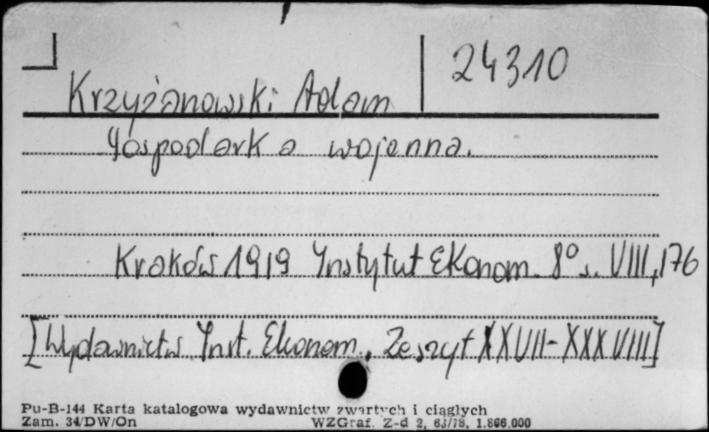 24310
Krzyżanowski Adam
Gospodarka wojenna.
Kraków 1919 Instytut Ekonom. 8° s. VIII, 176
[Wydawnictw Inst. Ekonom., Zeszyt XXVII-XXXVIII]
Pu-B-144 Karta katalogowa wydawnictw zwartych i ciągłych
Zam. 34/DW/On WZGraf. Z-d 2, 63/78, 1.866.000